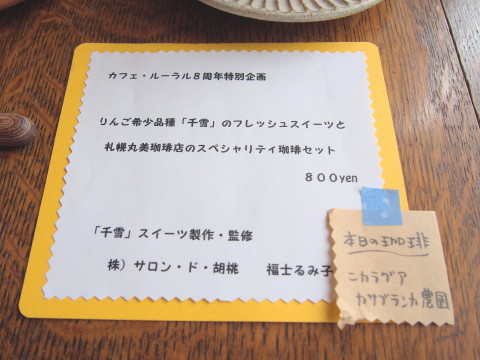 カフェ・ルーラル8周年特別企画
りんご希少品種「千雪」のフレッシュスイーツと
札幌丸美珈琲店のスペシャリティ珈琲セット
800yen
「千雪」スイーツ製作・監修
株）サロン・ド・胡桃　福士るみ子
本日の珈琲
ニカラグア
カサブランカ農園